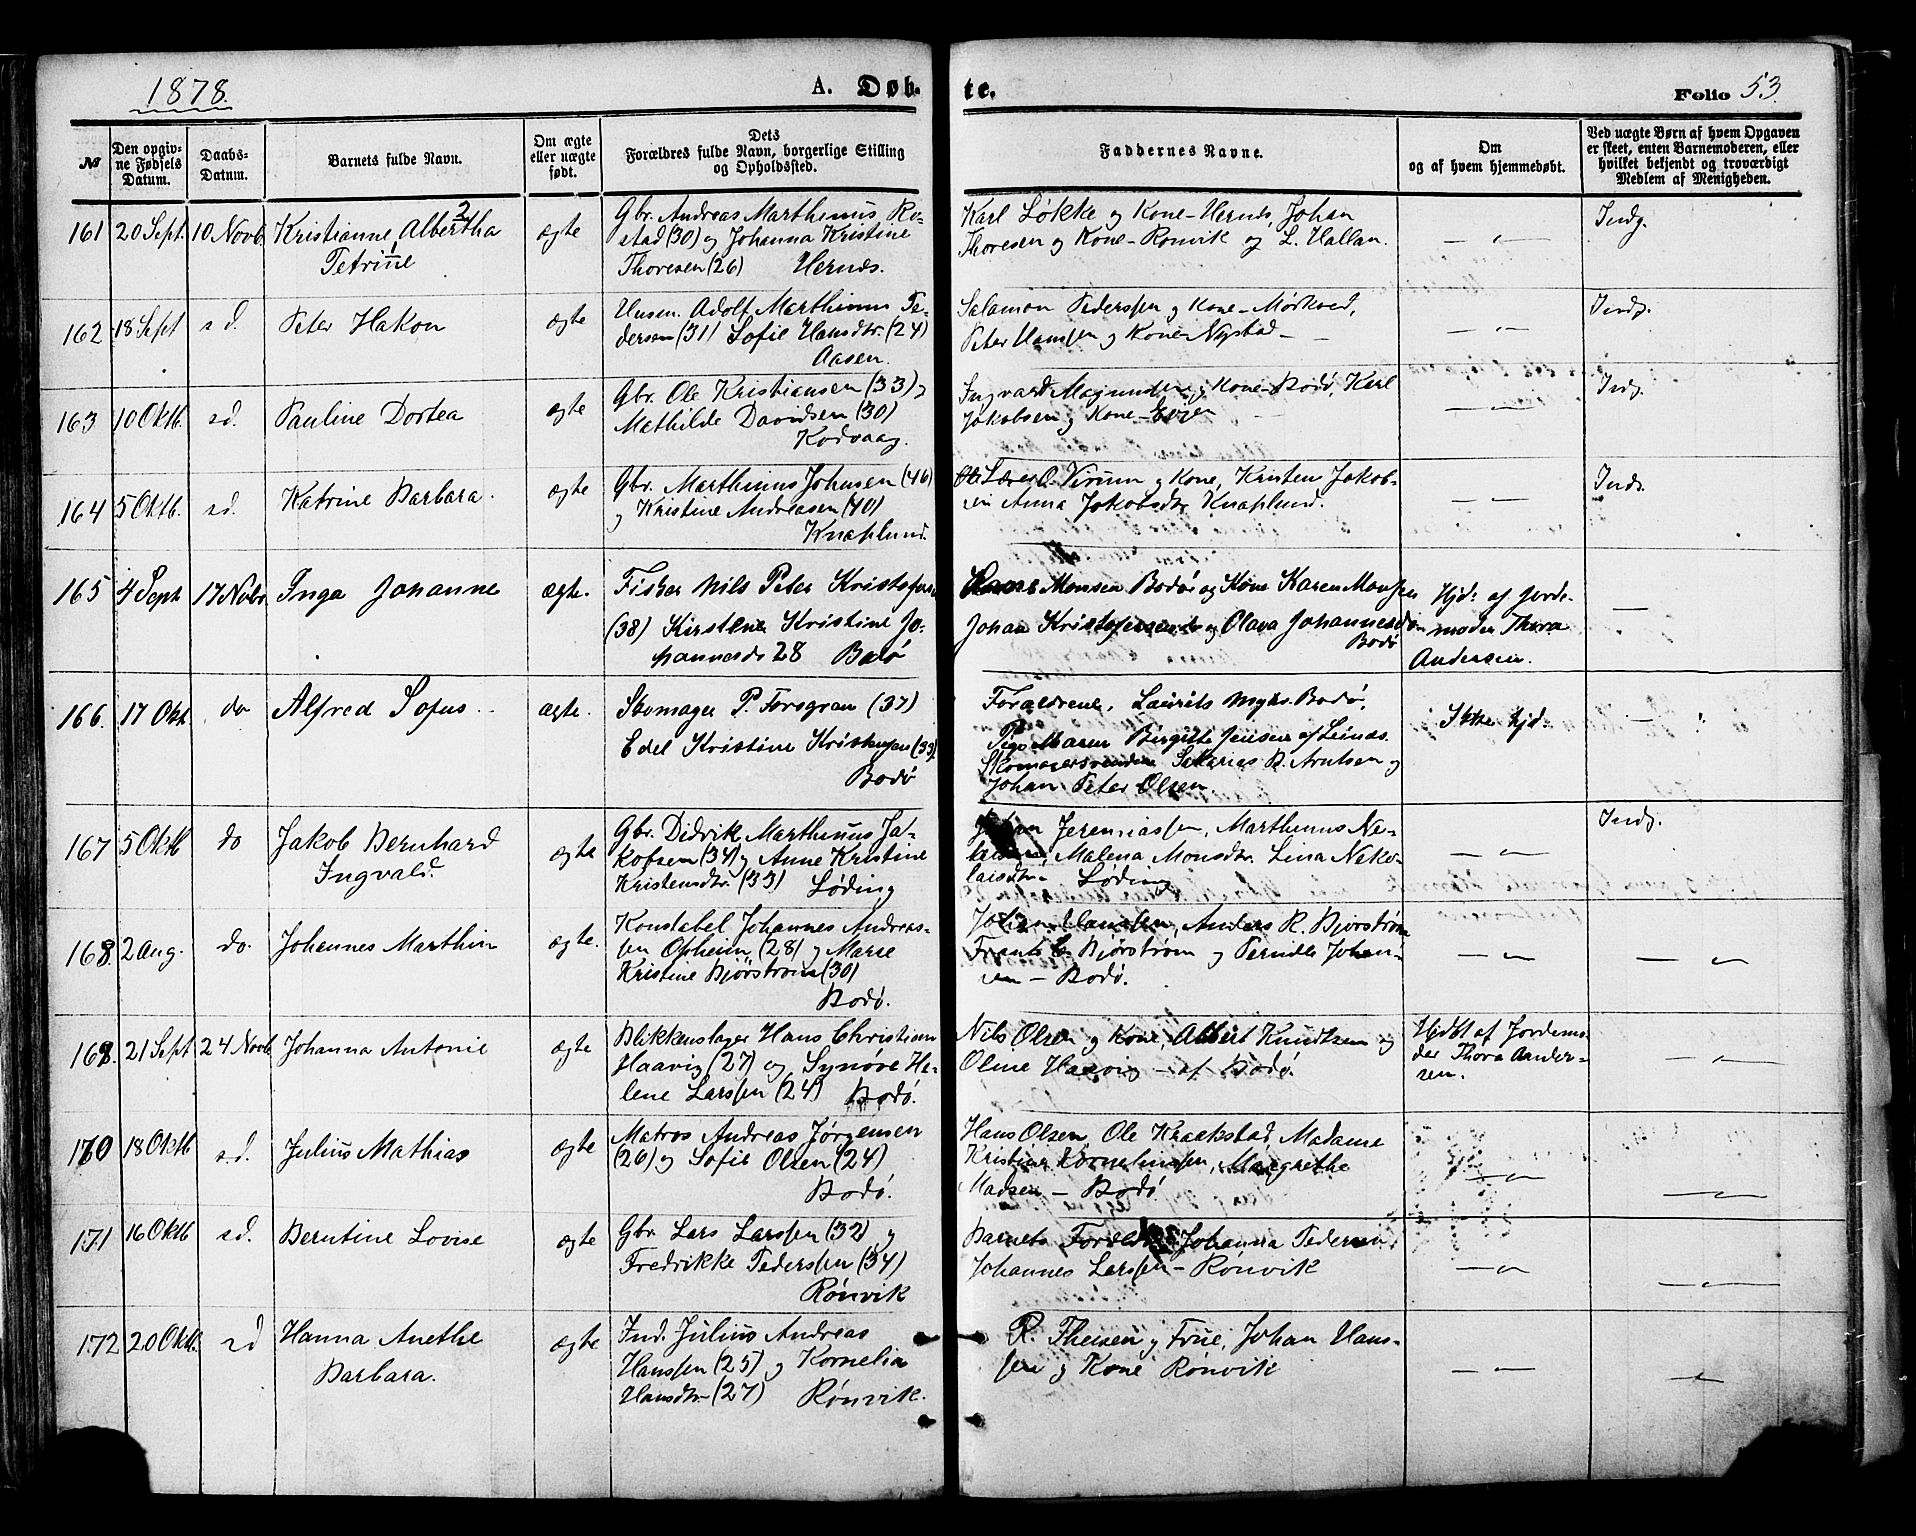 1878.
A. Døb-
te.
Folio 53.
№
Den opgiv-
ne Fødsels
Datum.
Daabs-
Datum.
Barnets fulde Navn.
Om ægte
eller uægte
født.
Dets
Forældres fulde Navn, borgerlige Stilling
og Opholdssted.
Faddernes Navne.
Om
og af hvem hjemmedøbt.
Ved uægte Børn af hvem Opgaven
er skeet, enten Barnemoderen, eller
hvilket bekjendt og troværdigt
Medlem af Menigheden.
161 20 Sept. 10 Novb. Kristianne Albertha 2
Petrine 1
ægte
Gbr. Andreas Marthinus Ro-
stad (30) og Johanna Kristine
Thoresen (26) Hernes.
Karl Løkke og Kone - Hernes, Johan
Thoresen og Kone - Rønvik og L. Hallan.
— " —
Indg.
162 18 Sept s.d. Peter Hakon ægte
Husm. Adolf Marthinus Pe-
dersen (31) Sofie Hansdtr. (24)
Aasen.
Salamon Pederssen og Kone - Mørkved,
Peter Hanssen og Kone Nystad —
— " —
Indg.
163 10 Oktb. s.d. Pauline Dortea ægte
Gbr. Ole Kristiansen (33) og
Mathilde Davidsen (30)
Kodvaag.
Ingvard Magnussen og Kone - Bodø, Karl
Jakobsen og Kone - Evjen
— " —
Indg.
164 5 Oktb. s.d. Katrine Barbara. ægte
Gbr. Marthinus Johnsen (46)
og Kristine Andreasen (40)
Knaplund.
Lærer O. Virum og Kone, Kristen Jakob-
sen Anna Jakobsdtr Knaplund.
— " —
Indg.
165 4 Sept 17 Novbr. Inga Johanne ægte.
Fisker Nils Peter Kristofersen
(38) Kirstene Kristine Jo-
hannesd. 28 Bodø
Monsen Bodø og Kone Karen Monsen
Johan Kristofersen og Olava Johannesd
Bodø
Hjd: af Jorde-
moder Thora
Andersen.
—
166. 17 Okt. do Alfred Sofus. ægte.
Skomager P. Forsgren (37)
Edel Kristine Kristensen (33)
Bodø
Forældrene, Laurits Myhr. Bodø,
Pige Maren Birgitte Jensen af Leines.
Skomagersvendene Sakarias B. Arntsen og
Johan Peter Olsen.
Ikke hjd.
— "
167 5 Oktb do Jakob Bernhard
Ingvald.
ægte
Gbr. Didrik Marthinus Ja-
kobsen (34) og Anne Kristine
Kristensdtr. (33) Løding
Jeremiassen, Marthinus Ni-
Malena Monsdtr. Lina Niko-
laisdtr - Løding
— " —
Indg.
168. 2 Aug. do. Johannes Marthin ægte.
Konstabel Johannes Andreas-
sen Opheim, (28) og Marie
Kristine Bjørstrøm (30)
Bodø.
Johan Hanssen, Anders R. Bjorstrøm
Frants E. Bjørstrøm og Pernille Johan-
sen — Bodø.
— " —
— " —
169. 21 Sept 24 Novb. Johanna Antonie ægte
Blikkenslager Hans Christian
Haavig (27) og Synøve He-
lene Larssen (24) Bodø.
Nils Olsen og Kone, Albert Knudtsen og
Oline Haavig — af Bodø.
Hjdbt af Jordemo-
der Thora Ander-
sen.
— " —
170 18 Oktb s.d. Julius Mathias ægte
Matros Andreas Jørgensen
(26) og Sofie Olsen (24)
Bodø.
Hans Olsen, Ole Kraakstad, Madame
Kristine Korneliussen, Margrethe
Madsen — Bodø
— " —
— " —
171 16 Oktb s.d. Berntine Lovise ægte
Gbr. Lars Larssen (32) og
Fredrikke Pederssen (34)
Rønvik
Barnets Forældre Johanna Pedersen
Johannes Larssen - Rønvik
— " —
— " —
172 20 Oktb. s.d Hanna Anethe
Barbara.
ægte
Ind. Julius Andreas
Hanssen (25) og Kornelia
Hansdtr (27) Rønvik.
R. Theisen og Frue, Johan Hans-
sen og Kone Rønvik
— " —
— " —